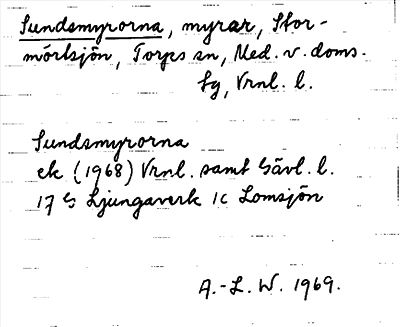 Sundsmyrorna, myrar, Stor-
mörtsjön, Torps sn, Med. v. doms.
sg, Vrnl. l.
Sundsmyrorna
ek (1968) Vrnl. samt Gävl. l.
17 G Ljungaverk 1c Lomsjön
A.-L. W. 1969.